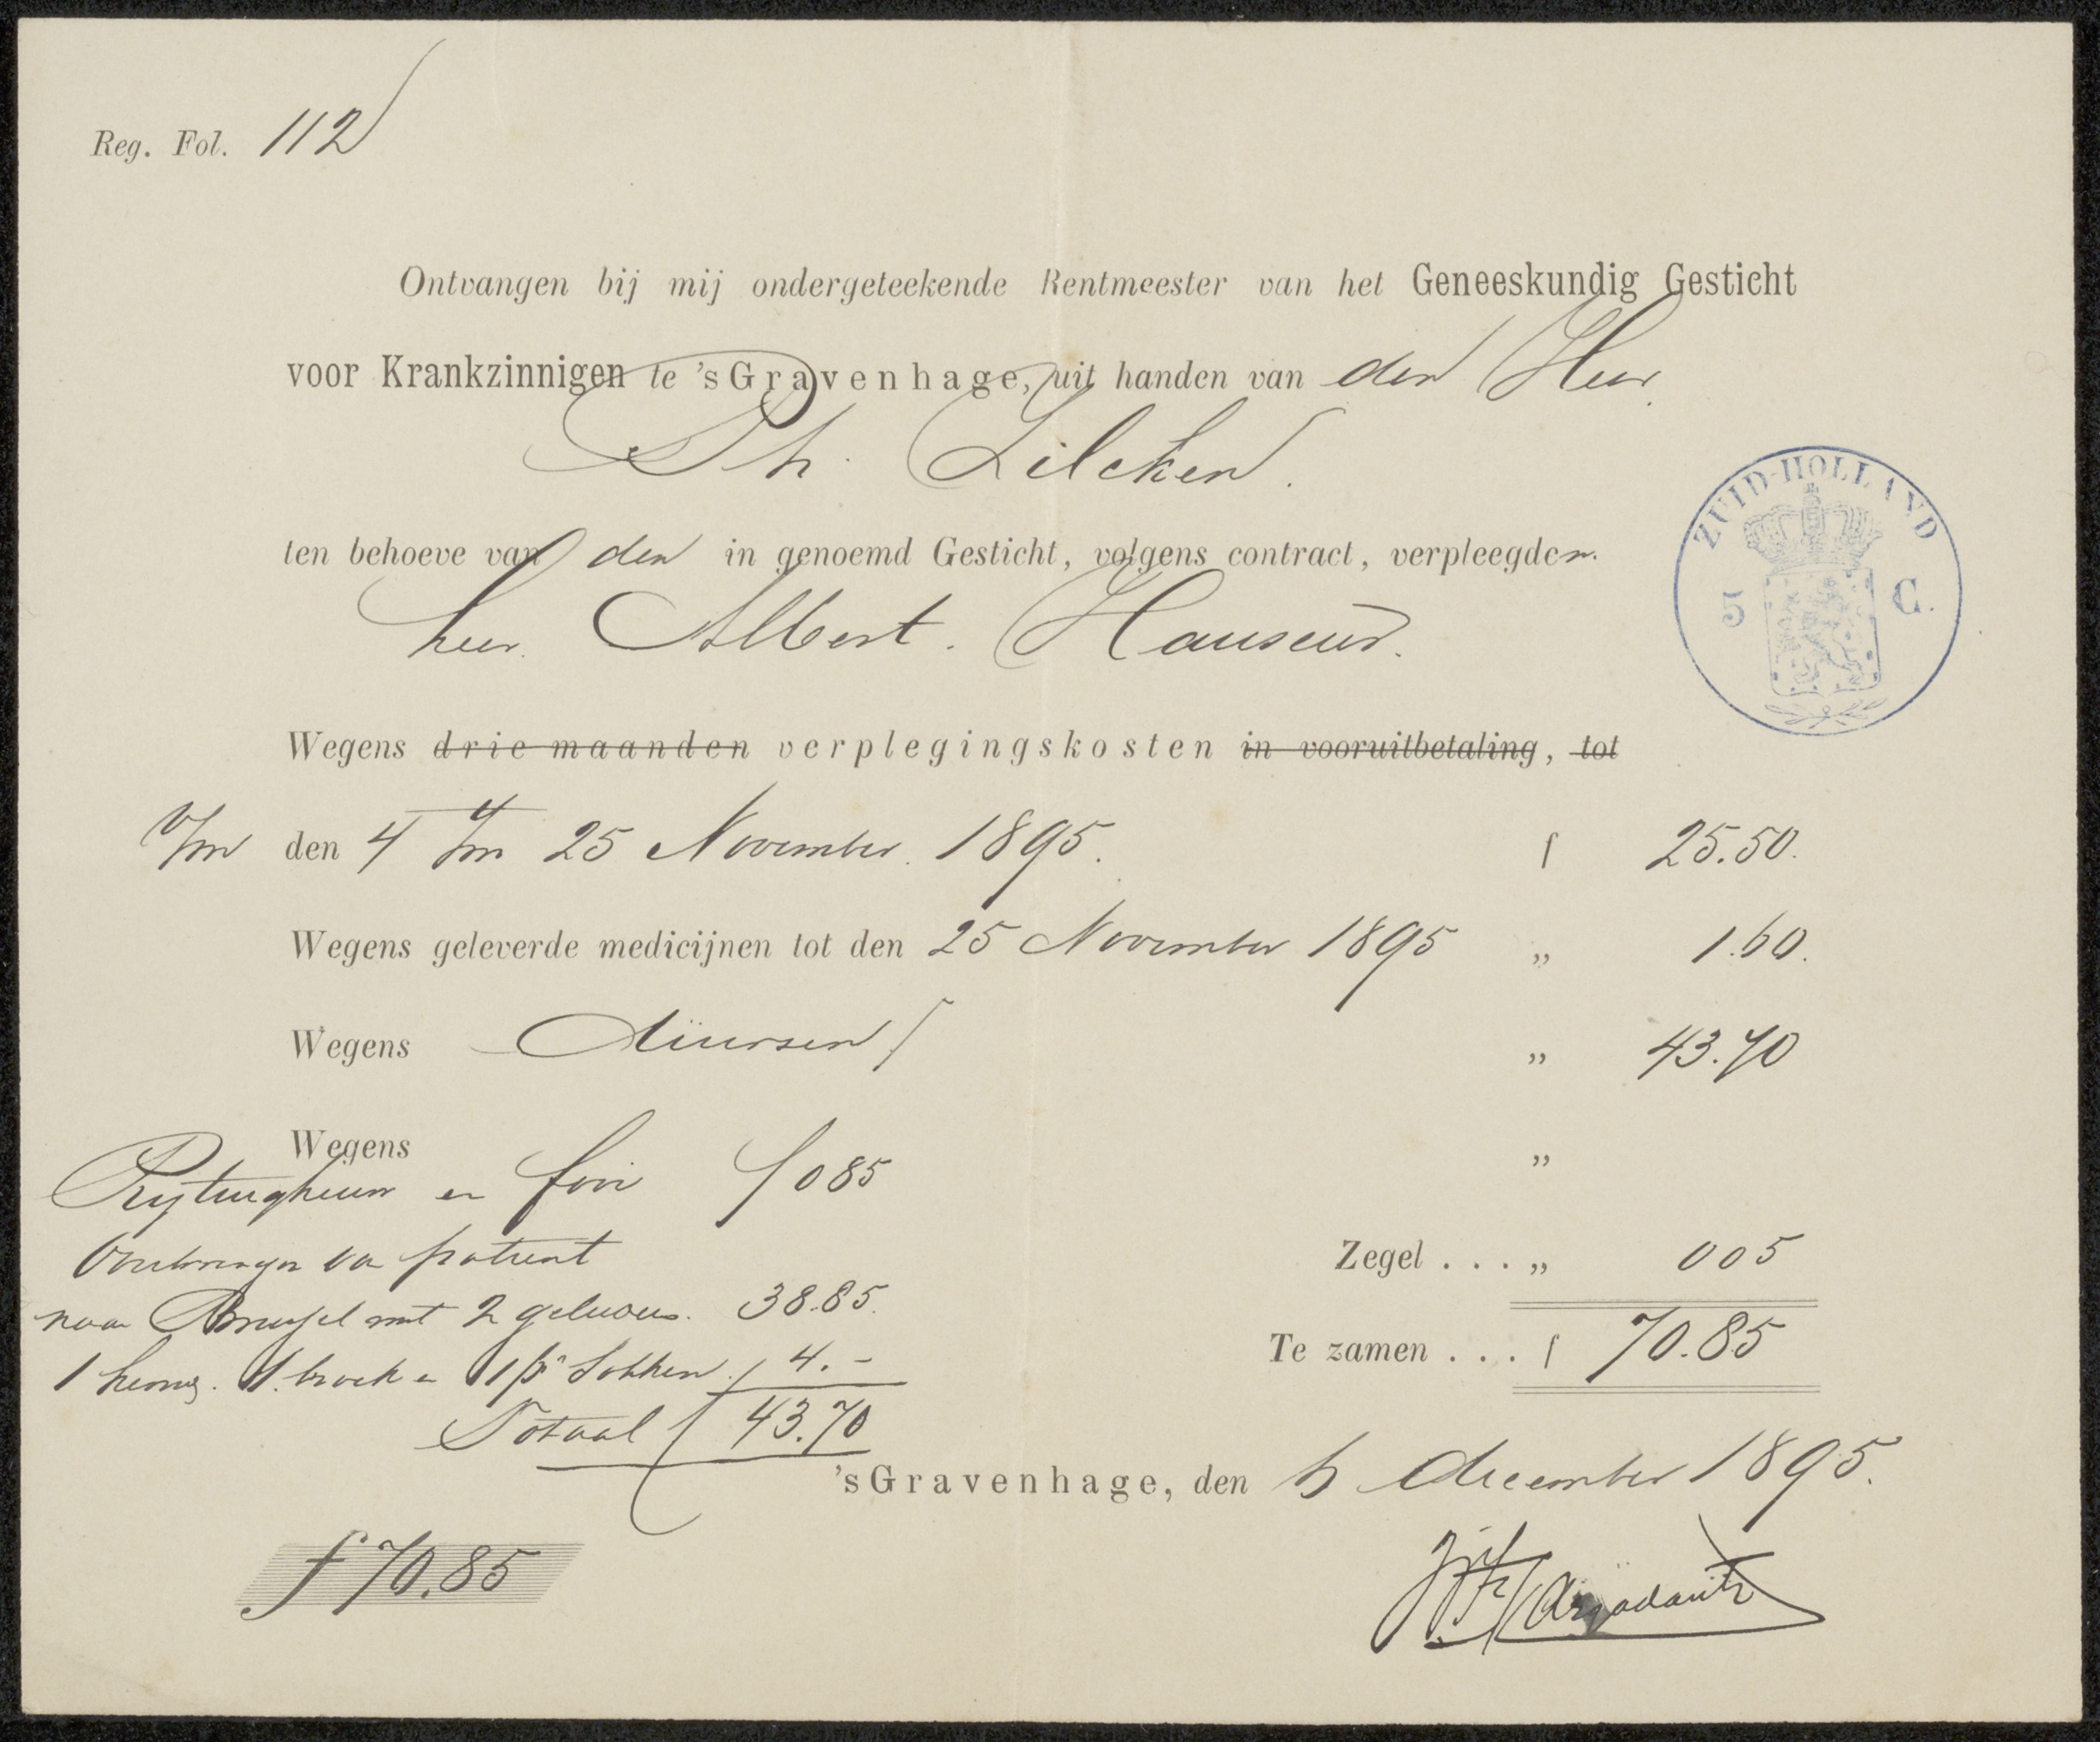 Reg. Fol. 112
Ontvangen bij mij ondergeteekende Rentmeester van het Geneeskundig Gesticht
voor Krankzinnigen te 'sGravenhage, uit handen van den Heer
Ph. Zilcken.
ZUID-HOLLAND
5 C.
ten behoeve van den in genoemd Gesticht, volgens contract, verpleegden.
heer Albert. Hauseur.
Wegens drie maanden verplegingskosten in vooruitbetaling, tot
v/m den 4 t/m 25 November 1895. f 25.50.
Wegens geleverde medicijnen tot den 25 November 1895 „ 1.60.
Wegens diversen „ 43.70
Wegens „
Rijtuighuur en fooi f 085
Overbrengen van patient
naar Brussel met 2 geleiders. 38.85.
1 hemd. 1. broek en 1 pr sokken 4.-
Totaal f 43.70
Zegel . . . „ 005
Te zamen . . . f 70.85
'sGravenhage, den 6 december 1895.
f 70.85